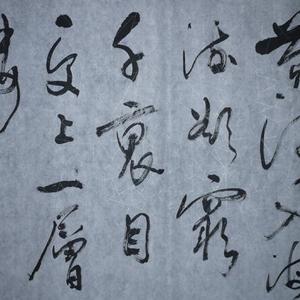 黃河入海
流欲窮
千裏目
更上一層
樓